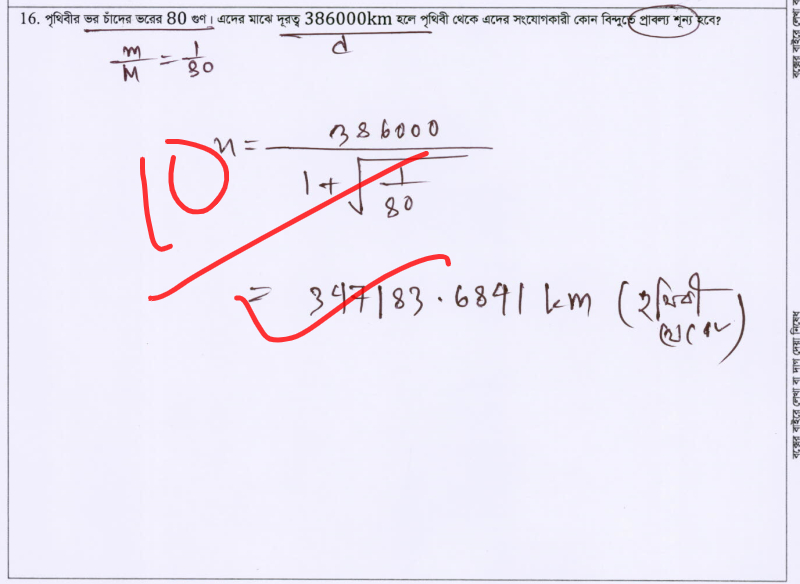 16. পৃথিবীর ভর চাঁদের ভরের 80 গুণ। এদের মাঝে দূরত্ব 386000km হলে পৃথিবী থেকে এদের সংযোগকারী কোন বিন্দুতে প্রাবল্য শূন্য হবে?
d
m/M = 1/80
x = 386000 / (1 + √(1/80))
10
= 347183.6841 km (পৃথিবী থেকে)
বক্সের বাইরে লেখা বা দাগ দেয়া নিষেধ